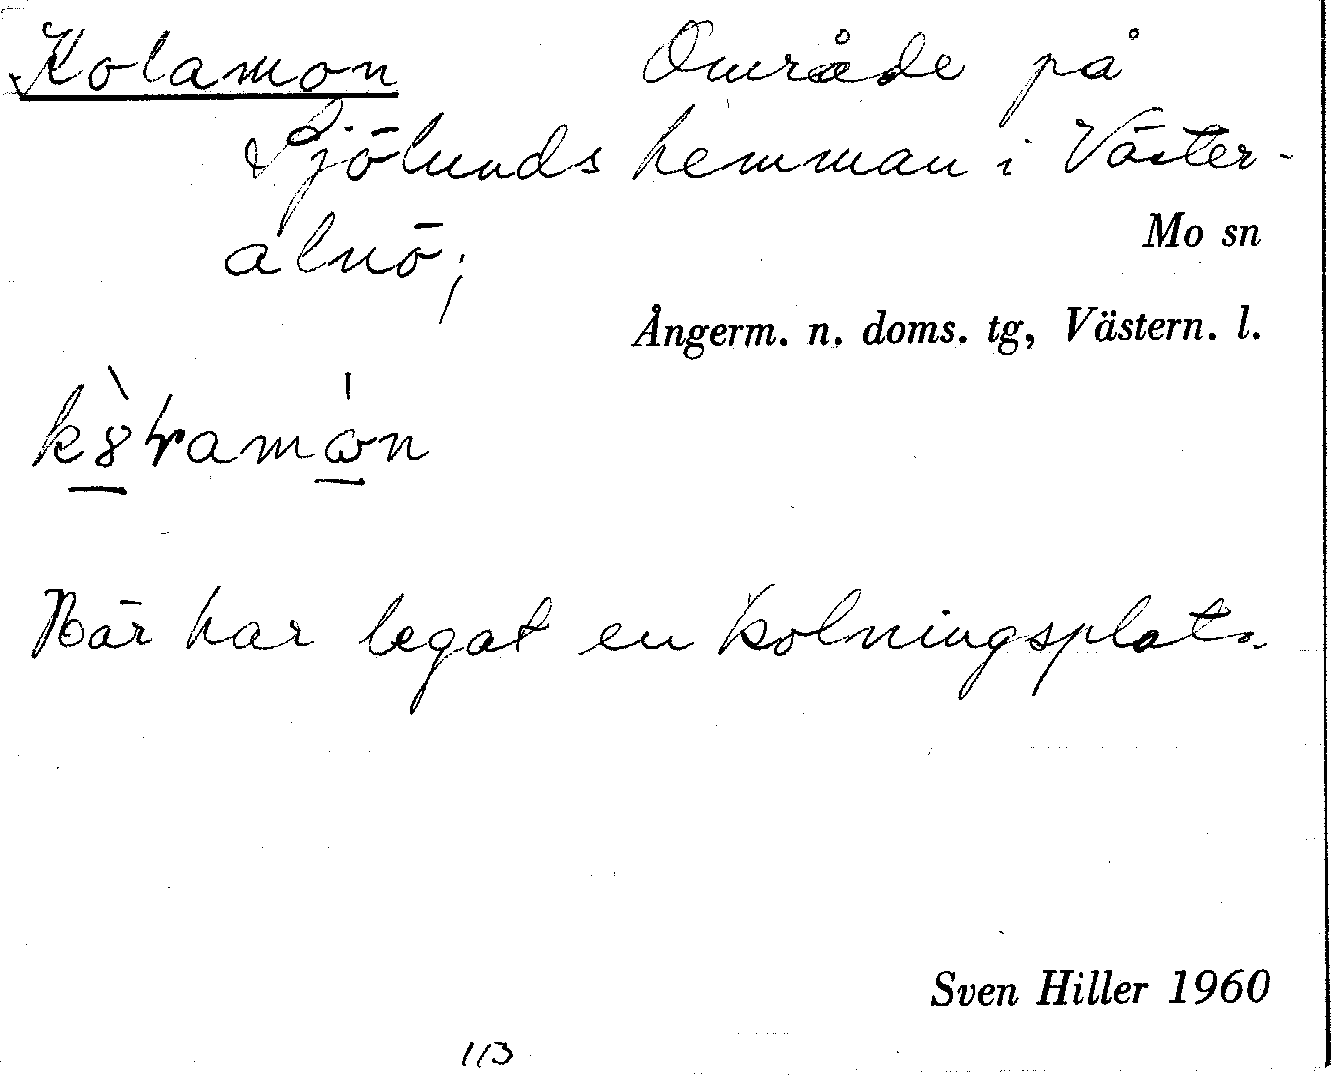 Kolamon Område på
Sjölunds hemman i Väster-
alnö;
Mo sn
Ångerm. n. doms. tg, Västern. l.
Här har legat en kolningsplats.
Sven Hiller 1960
113